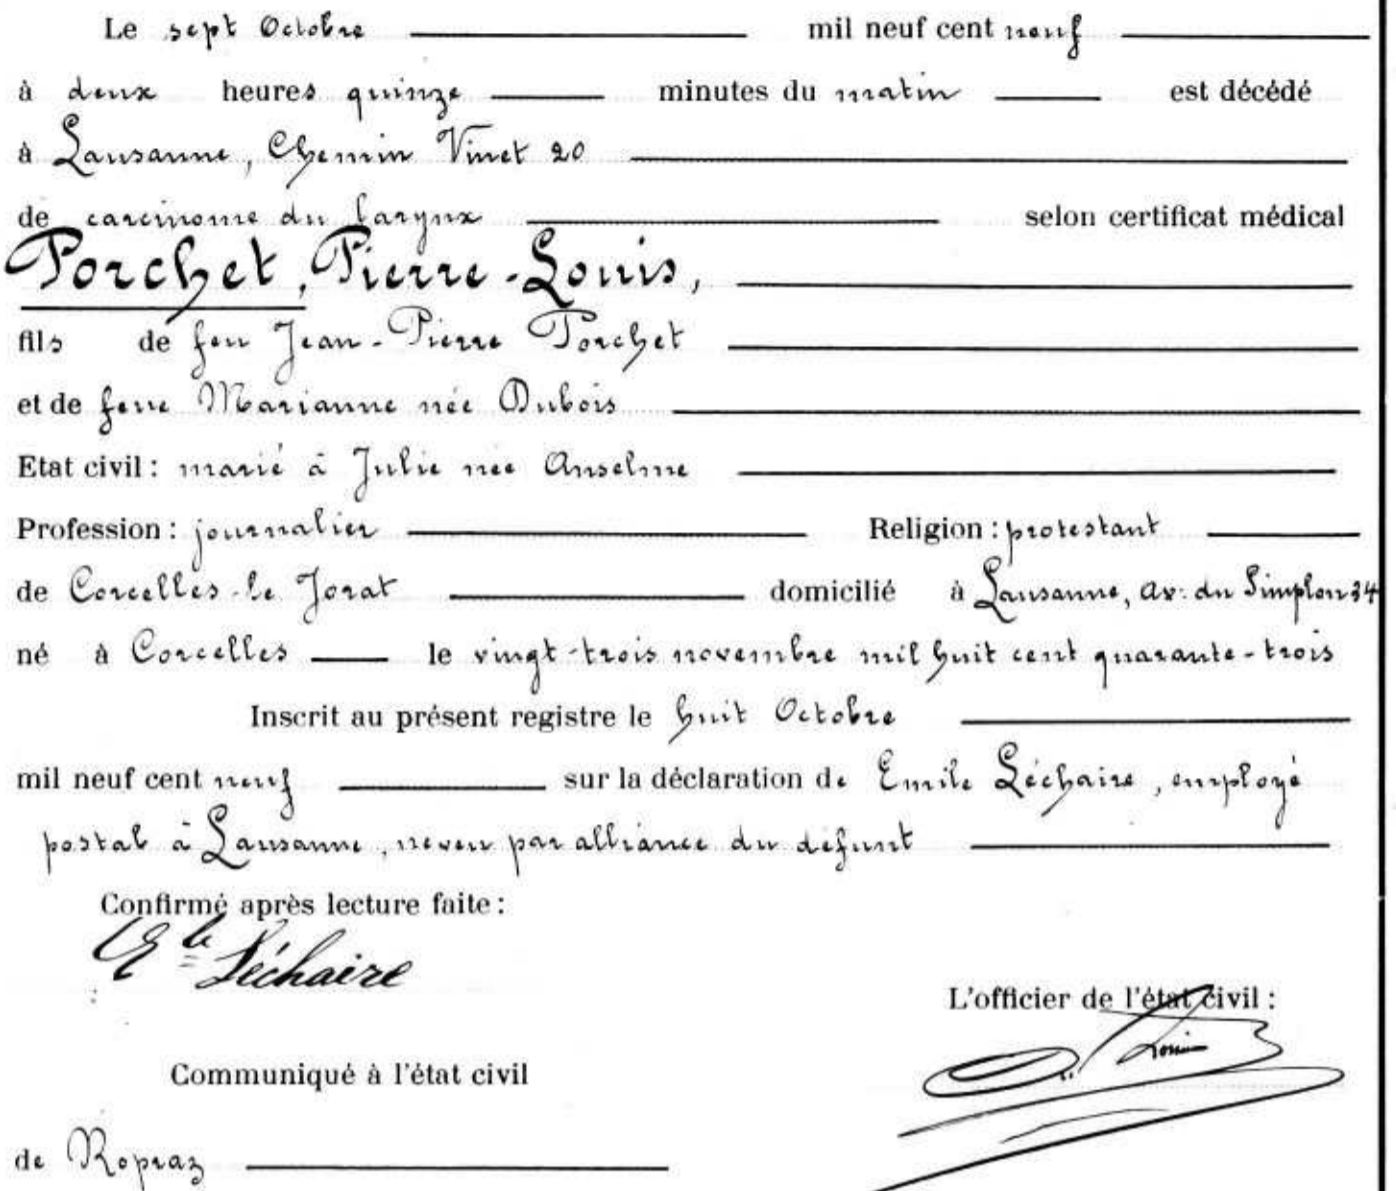 Le sept Octobre mil neuf cent neuf
à deux heures quinze minutes du matin est décédé
à Lausanne, Chemin Vinet 20
de carcinome du larynx selon certificat médical
Porchet, Pierre-Louis,
fils de feu Jean-Pierre Porchet
et de feue Marianne née Dubois
Etat civil : marié à Julie née Anselme
Profession : journalier Religion : protestant
de Corcelles-le Jorat domicilié à Lausanne, av. du Simplon 34
né à Corcelles le vingt-trois novembre mil huit cent quarante-trois
Inscrit au présent registre le huit Octobre
mil neuf cent neuf sur la déclaration de Emile Léchaire, employé
postal à Lausanne, neveu par alliance du défunt
Confirmé après lecture faite :
Ele Léchaire
L'officier de l'état civil :
Communiqué à l'état civil
de Ropraz